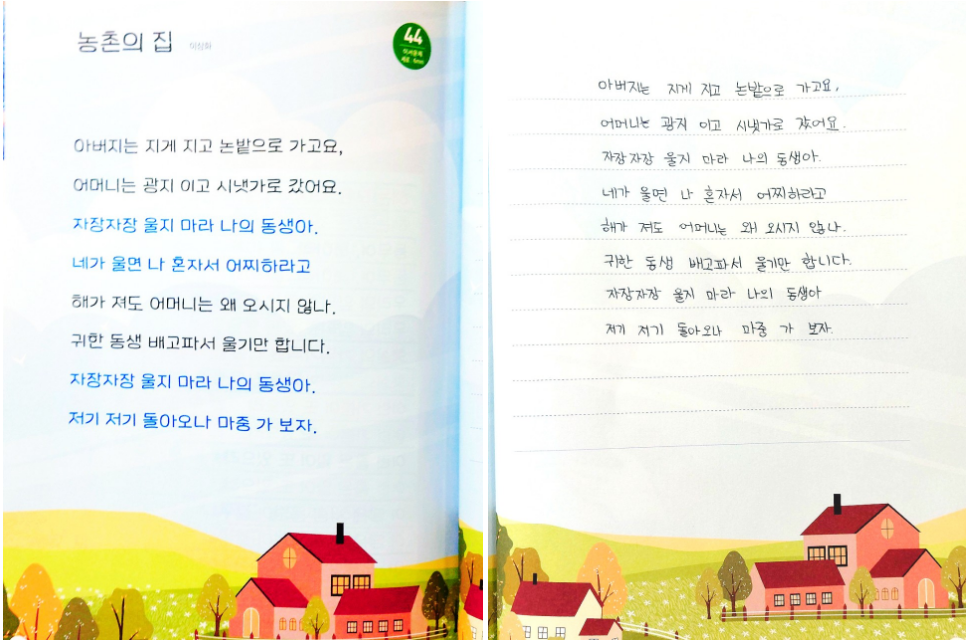 농촌의 집
이상화
44
아버지는 지게 지고 논밭으로 가고요,
어머니는 광지 이고 시냇가로 갔어요.
자장자장 울지 마라 나의 동생아.
네가 울면 나 혼자서 어찌하라고
해가 져도 어머니는 왜 오시지 않나.
귀한 동생 배고파서 울기만 합니다.
자장자장 울지 마라 나의 동생아.
저기 저기 돌아오나 마중 가 보자.
아버지는 지게 지고 논밭으로 가고요,
어머니는 광지 이고 시냇가로 갔어요.
자장자장 울지 마라 나의 동생아.
네가 울면 나 혼자서 어찌하라고
해가 져도 어머니는 왜 오시지 않나.
귀한 동생 배고파서 울기만 합니다.
자장자장 울지 마라 나의 동생아
저기 저기 돌아오나 마중 가 보자.